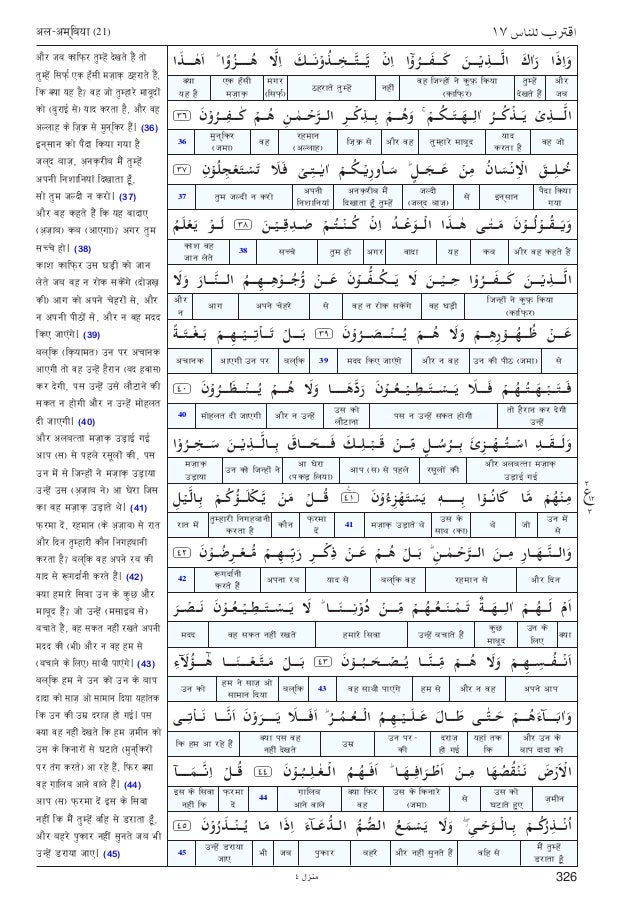 अल-अम्बिया (21)
اقترب للناس ١٧
और जब काफ़िर तुम्हें देखते हैं तो
तुम्हें सिर्फ़ एक हँसी मज़ाक़ ठहराते हैं,
कि क्या यह है? वह जो तुम्हारे माबूदों
को (बुराई से) याद करता है, और वह
अल्लाह के ज़िक्र से मुन्किर हैं। (36)
इन्सान को पैदा किया गया है
जल्द बाज़, अनक़रीब मैं तुम्हें
अपनी निशानियां दिखाता हूँ,
सो तुम जल्दी न करो। (37)
और वह कहते हैं कि यह वादाए
(अ़ज़ाब) कब (आएगा)? अगर तुम
सच्चे हो। (38)
काश काफ़िर उस घड़ी को जान
लेते जब वह न रोक सकेंगे (दोज़ख़
की) आग को अपने चेहरों से, और
न अपनी पीठों से, और न वह मदद
किए जाएंगे। (39)
बल्कि (क़ियामत) उन पर अचानक
आएगी तो वह उन्हें हैरान (बद हवास)
कर देगी, पस उन्हें उसे लौटाने की
सकत न होगी और न उन्हें मोहलत
दी जाएगी। (40)
और अलबत्ता मज़ाक़ उड़ाई गई
आप (स) से पहले रसूलों की, पस
उन में से जिन्हों ने मज़ाक़ उड़ाया
उन्हें उस (अ़ज़ाब ने) आ घेरा जिस
का वह मज़ाक़ उड़ाते थे। (41)
फ़रमा दें, रहमान (के अ़ज़ाब) से रात
और दिन तुम्हारी कौन निगहबानी
करता है? बल्कि वह अपने रब की
याद से रूगर्दानी करते हैं। (42)
क्या हमारे सिवा उन के कुछ और
माबूद हैं? जो उन्हें (मसाइब से)
बचाते हैं, वह सकत नहीं रखते अपनी
मदद की (भी) और न वह हम से
(बचाने के लिए) साथी पाएंगे। (43)
बल्कि हम ने उन को उन के बाप
दादा को साज़ ओ सामान दिया यहांतक
कि उन की उम्र दराज़ हो गई। पस
क्या वह नहीं देखते कि हम ज़मीन को
उस के किनारों से घटाते (मुन्किरों
पर तंग करते) आ रहे हैं, फिर क्या
वह ग़ालिब आने वाले हैं। (44)
आप (स) फ़रमा दें इस के सिवा
नहीं कि मैं तुम्हें वहि से डराता हूँ,
और बहरे पुकार नहीं सुनते जब भी
उन्हें डराया जाए। (45)
وَاِذَا رَاٰكَ الَّذِيْنَ كَفَرُوْٓا اِنْ يَّتَّخِذُوْنَكَ اِلَّا هُزُوًا ؕ اَهٰذَا
और जब | तुम्हें देखते हैं | वह जिन्हों ने कुफ़्र किया (काफ़िर) | नहीं | ठहराते तुम्हें | मगर (सिर्फ़) | एक हँसी मज़ाक़ | क्या यह है
الَّذِيْ يَذْكُرُ اٰلِهَتَكُمْ ۚ وَهُمْ بِذِكْرِ الرَّحْمٰنِ هُمْ كٰفِرُوْنَ ٣٦
वह जो | याद करता है | तुम्हारे माबूद | और वह | ज़िक्र से | रहमान (अल्लाह) | वह | मुन्किर (जमा) | 36
خُلِقَ الْاِنْسَانُ مِنْ عَجَلٍ ؕ سَاُورِيْكُمْ اٰيٰتِيْ فَلَا تَسْتَعْجِلُوْنَ ٣٧
पैदा किया गया | इन्सान | से | जल्दी (जल्द बाज़) | अनक़रीब मैं दिखाता हूँ तुम्हें | अपनी निशानियां | तुम जल्दी न करो | 37
وَيَقُوْلُوْنَ مَتٰى هٰذَا الْوَعْدُ اِنْ كُنْتُمْ صٰدِقِيْنَ ٣٨ لَوْ يَعْلَمُ
और वह कहते हैं | कब | यह | वादा | अगर | तुम हो | सच्चे | 38 | काश वह जान लेते
الَّذِيْنَ كَفَرُوْا حِيْنَ لَا يَكُفُّوْنَ عَنْ وُّجُوْهِهِمُ النَّارَ وَلَا
जिन्हों ने कुफ़्र किया (काफ़िर) | वह घड़ी | वह न रोक सकेंगे | से | अपने चेहरे | आग | और न
عَنْ ظُهُوْرِهِمْ وَلَا هُمْ يُنْصَرُوْنَ ٣٩ بَلْ تَاْتِيْهِمْ بَغْتَةً
से | उन की पीठ (जमा) | और न वह | मदद किए जाएंगे | 39 | बल्कि | आएगी उन पर | अचानक
فَتَبْهَتُهُمْ فَلَا يَسْتَطِيْعُوْنَ رَدَّهَا وَلَا هُمْ يُنْظَرُوْنَ ٤٠
तो हैरान कर देगी उन्हें | पस न उन्हें सकत होगी | उस को लौटाना | और न उन्हें | मोहलत दी जाएगी | 40
وَلَقَدِ اسْتُهْزِئَ بِرُسُلٍ مِّنْ قَبْلِكَ فَحَاقَ بِالَّذِيْنَ سَخِرُوْا
और अलबत्ता मज़ाक़ उड़ाई गई | रसूलों की | आप (स) से पहले | आ घेरा (पकड़ लिया) | उन को जिन्हों ने | मज़ाक़ उड़ाया
مِنْهُمْ مَّا كَانُوْا بِهٖ يَسْتَهْزِءُوْنَ ٤١ قُلْ مَنْ يَّكْلَؤُكُمْ بِالَّيْلِ
उन में से | जो | थे | उस के साथ (का) | मज़ाक़ उड़ाते थे | 41 | फ़रमा दें | कौन | तुम्हारी निगहबानी करता है | रात में
وَالنَّهَارِ مِنَ الرَّحْمٰنِ ؕ بَلْ هُمْ عَنْ ذِكْرِ رَبِّهِمْ مُّعْرِضُوْنَ ٤٢
और दिन | रहमान से | बल्कि वह | याद से | अपना रब | रूगर्दानी करते हैं | 42
اَمْ لَهُمْ اٰلِهَةٌ تَمْنَعُهُمْ مِّنْ دُوْنِنَا ؕ لَا يَسْتَطِيْعُوْنَ نَصْرَ
क्या | उन के लिए | कुछ माबूद | उन्हें बचाते हैं | हमारे सिवा | वह सकत नहीं रखते | मदद
اَنْفُسِهِمْ وَلَا هُمْ مِّنَّا يُصْحَبُوْنَ ٤٣ بَلْ مَتَّعْنَا هٰٓؤُلَآءِ
अपने आप | और न वह | हम से | वह साथी पाएंगे | 43 | बल्कि | हम ने साज़ ओ सामान दिया | उन को
وَاٰبَآءَهُمْ حَتّٰى طَالَ عَلَيْهِمُ الْعُمُرُ ؕ اَفَلَا يَرَوْنَ اَنَّا نَاْتِي
और उन के बाप दादा को | यहां तक कि | दराज़ हो गई | उन पर - की | उम्र | क्या पस वह नहीं देखते | कि हम आ रहे हैं
الْاَرْضَ نَنْقُصُهَا مِنْ اَطْرَافِهَا ؕ اَفَهُمُ الْغٰلِبُوْنَ ٤٤ قُلْ اِنَّمَآ
ज़मीन | उस को घटाते हुए | से | उस के किनारे (जमा) | क्या फिर वह | ग़ालिब आने वाले | 44 | फ़रमा दें | इस के सिवा नहीं कि
اُنْذِرُكُمْ بِالْوَحْيِ ۖ وَلَا يَسْمَعُ الصُّمُّ الدُّعَآءَ اِذَا مَا يُنْذَرُوْنَ ٤٥
मैं तुम्हें डराता हूँ | वहि से | और नहीं सुनते हैं | बहरे | पुकार | जब | भी | उन्हें डराया जाए | 45
٢
ع
١٢
٣
منزل ٤
326